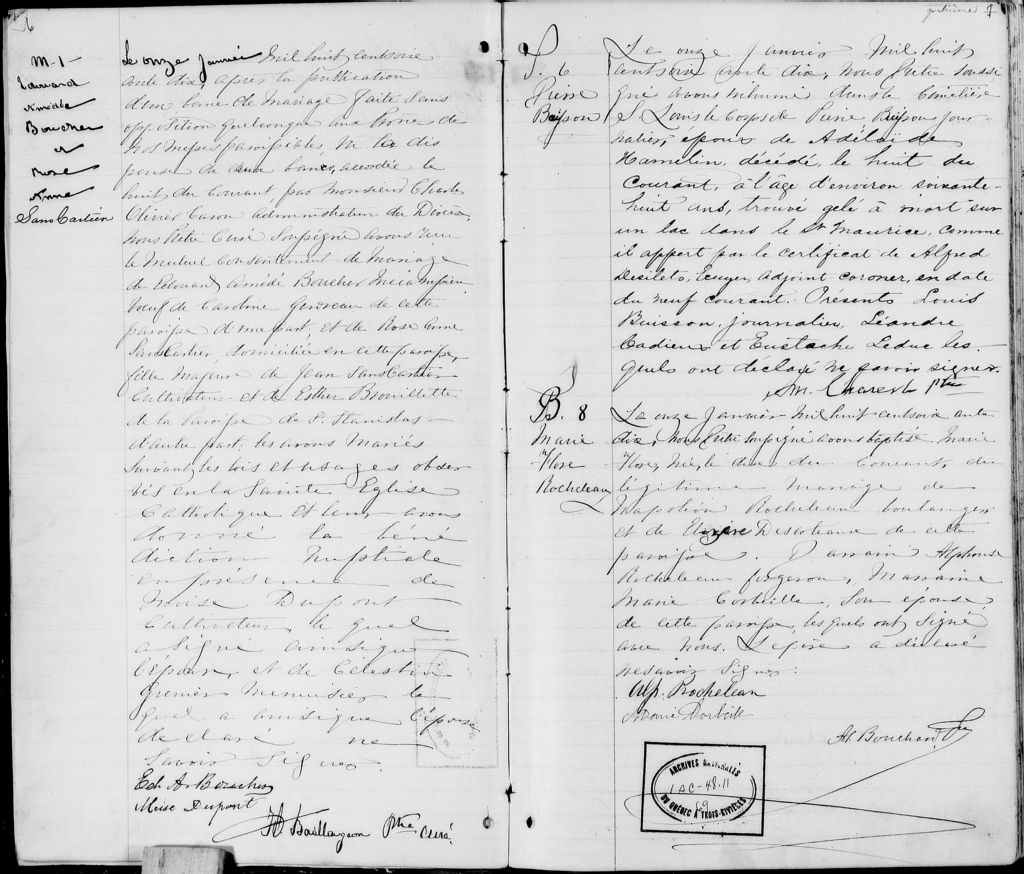 6
M-1-
Edouard
Amédé
Boucher
et
Rose
Anne
SansCartier
Le onze Janvier Mil huit centsoix
ante dix, après la publication
d'un banc de Mariage faite sans
opposition quelconque aux Prone de
nos Messes paroissiale, vu la dis
pense de deux bancs, accordée le
huit du Courant par monsieur Charles
Olivier Caron Administrateur du Diocèse,
nous Prêtre Curé Soussigné avons reçu
le Mutuel Consentement de Mariage
de Edouard Amédé Boucher
Veuf de Caroline de cette
paroisse d'une part, et de Rose Anne
SansCartier, domiciliée en cette paroisse,
fille Majeure de Jean SansCartier
Cultivateur et de Esther Brouillette
de la Paroisse de St. Stanislas
d'autre part. les avons Mariés
Suivant les lois et usages obser
vés en la Sainte Eglise
Catholique et leur avons
donné la béné
diction Nuptiale
en présence de
Moise Dupont
Cultivateur, le quel
a Signé ainsi que
l'époux, et de Célestin
Grenier Menuisier, le
quel a ainsi que l'épouse
declaré ne
Savoir Signer.
Ed. A. Boucher
Moise Dupont
Baillargeon Ptre Curé
7
S. 6
Pierre
Buisson
Le onze Janvier Mil huit
centsoixante dix, nous Prêtre soussi
gné avons inhumé dans le Cimetière
St Louis le Corps de Pierre Buisson jour
nalier, époux de Adélaïde
Hamelin, décédé, le huit du
Courant, à l'âge d'environ soixante-
huit ans, trouvé gelé à mort sur
un lac dans le St Maurice, comme
il appert par le certificat de Alfred
Desilets, Ecuyer, Adjoint coroner, en date
du neuf courant. Présents Louis
Buisson, journalier, Léandre
Cadieux et Eustache Leduc les-
quels ont déclaré ne savoir signer.
Ptre
B. 8
Marie
Flore
Rocheleau
Le onze Janvier Mil huit centsoix ante
dix, Nous Prêtre Soussigné avons baptisé Marie
Flore, Née, le dix du Courant, du
légitime mariage de
Napoléon Rocheleau boulanger
et de de cette
paroisse. Parrain Alphonse
Rocheleau forgeron, Marraine
Marie Corbeille, Son epouse,
de cette paroisse, les quels ont Signé
avec Nous. Le père a déclaré
ne savoir Signer.
Alp. Rocheleau
Marie Corbeille
ARCHIVES NATIONALES
1 AC-48-11
69
DU QUÉBEC À TROIS-RIVIÈRES